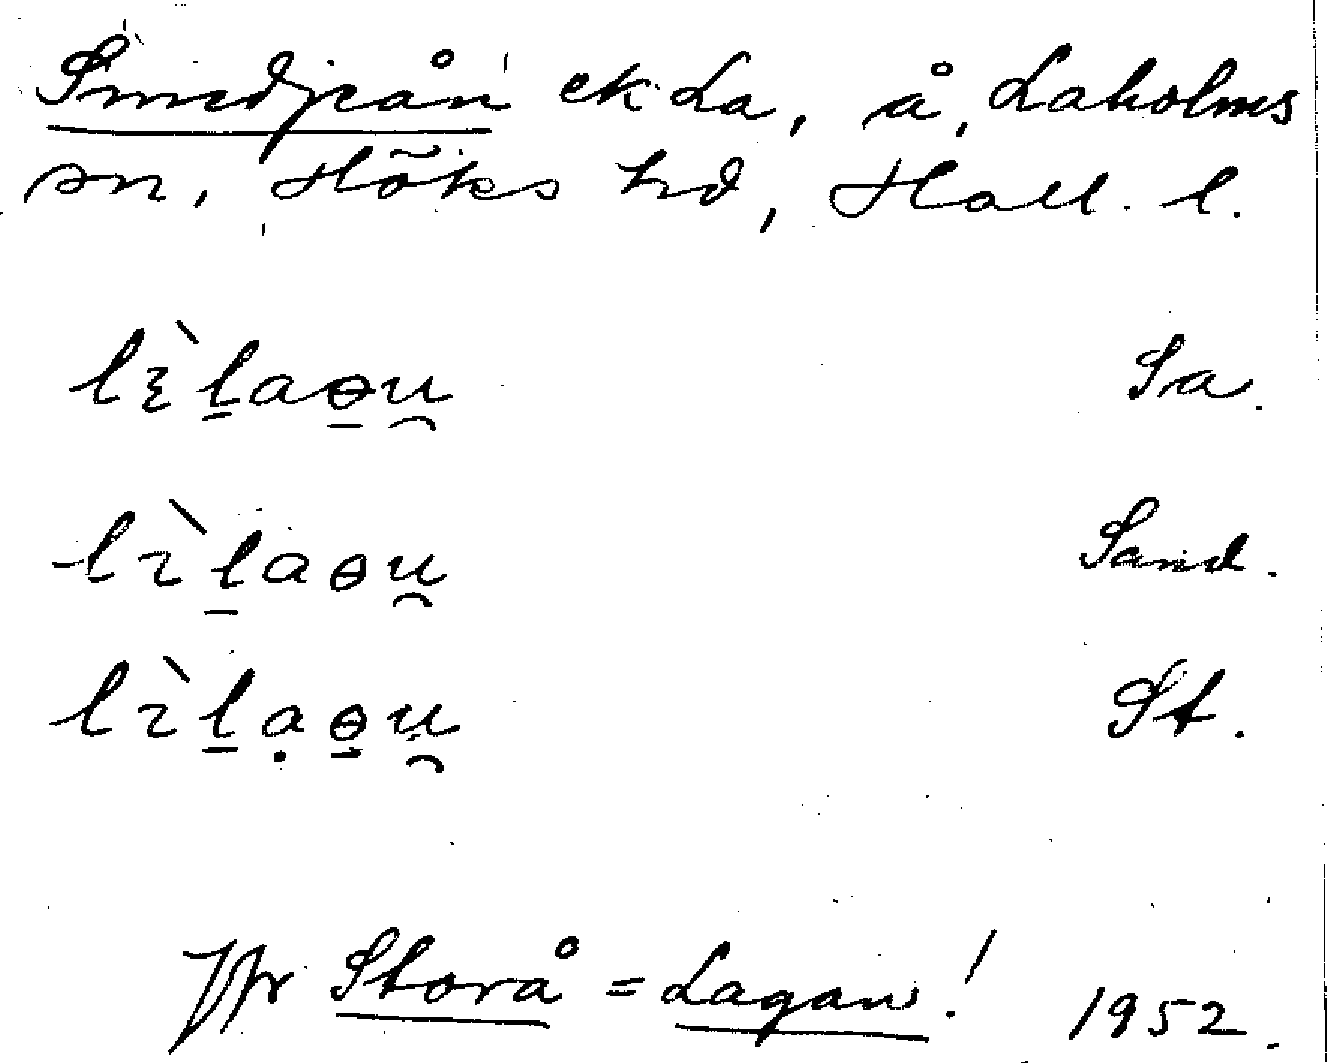 Smedjeån ek La, å, Laholms
sn, Höks hd, Hall. l.
Sa.
Sand.
St.
Jfr Storå = Lagan! 1952.